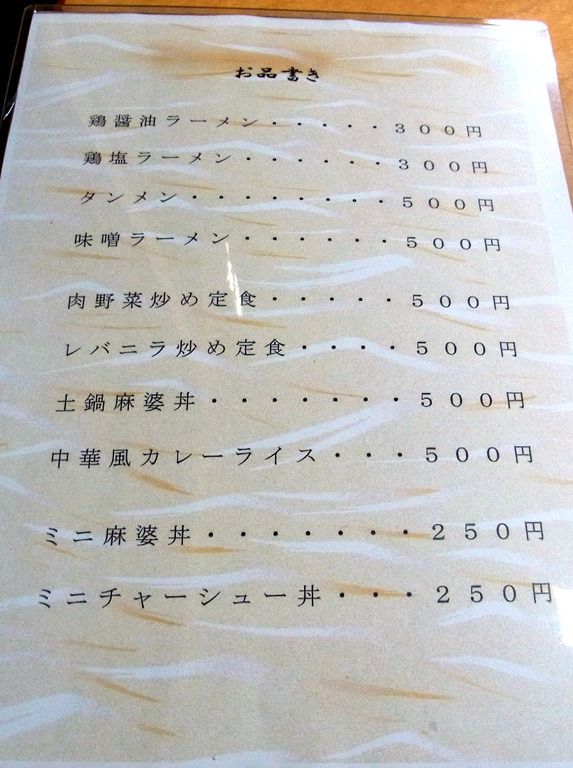 お品書き
鶏醤油ラーメン・・・・・３００円
鶏塩ラーメン・・・・・・３００円
タンメン・・・・・・・・５００円
味噌ラーメン・・・・・・５００円
肉野菜炒め定食・・・・・５００円
レバニラ炒め定食・・・・５００円
土鍋麻婆丼・・・・・・・５００円
中華風カレーライス・・・５００円
ミニ麻婆丼・・・・・・・２５０円
ミニチャーシュー丼・・・２５０円